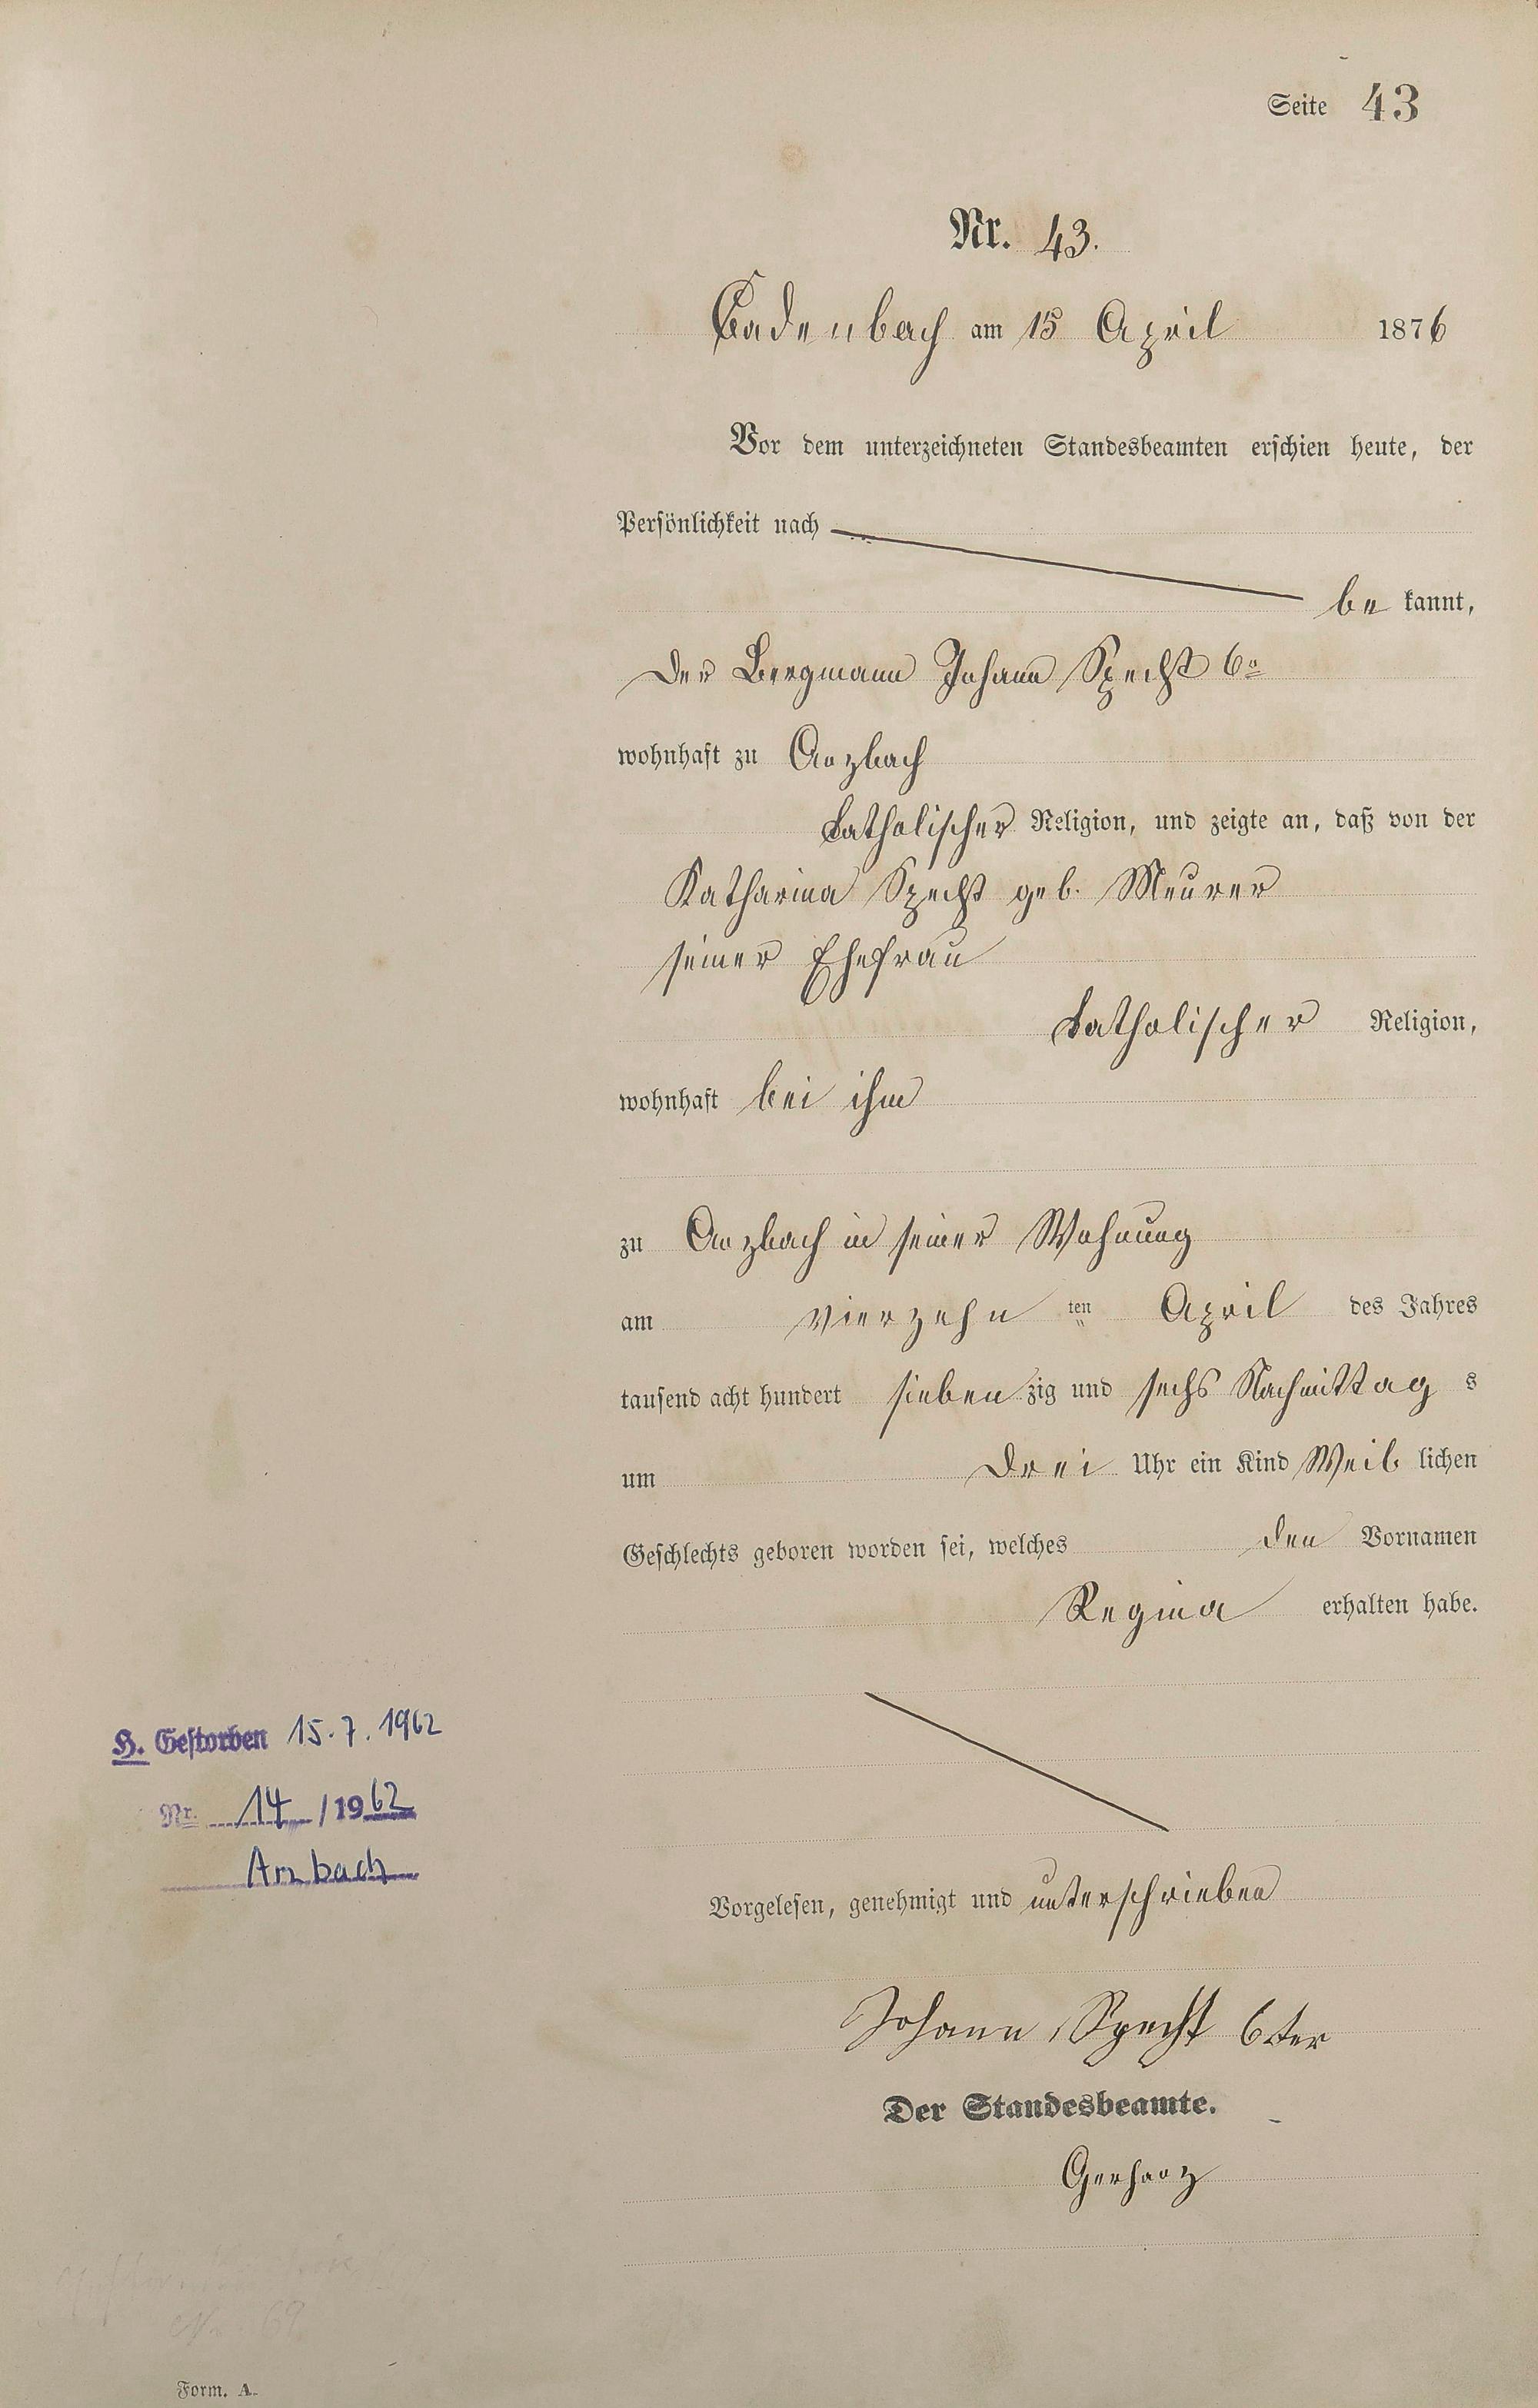 Seite 43
Nr. 43.
Cadenbach am 15 April 1876
Vor dem unterzeichneten Standesbeamten erschien heute, der
Persönlichkeit nach
be kannt,
der Bergmann Johann Specht 6r
wohnhaft zu Arzbach
katholischer Religion, und zeigte an, daß von der
Katharina Specht geb. Meurer
seiner Ehefrau
katholischer Religion,
wohnhaft bei ihm
zu Arzbach in seiner Wohnung
am vierzehn ten April des Jahres
tausend acht hundert siebenzig und sechs Nachmittag s
um drei Uhr ein Kind Weib lichen
Geschlechts geboren worden sei, welches den Vornamen
Regina erhalten habe.
H. Gestorben 15.7.1962
Nr. 14 /1962
Arzbach
Vorgelesen, genehmigt und unterschrieben
Johann Specht 6ter
Der Standesbeamte.
Gerharz
Form. A.